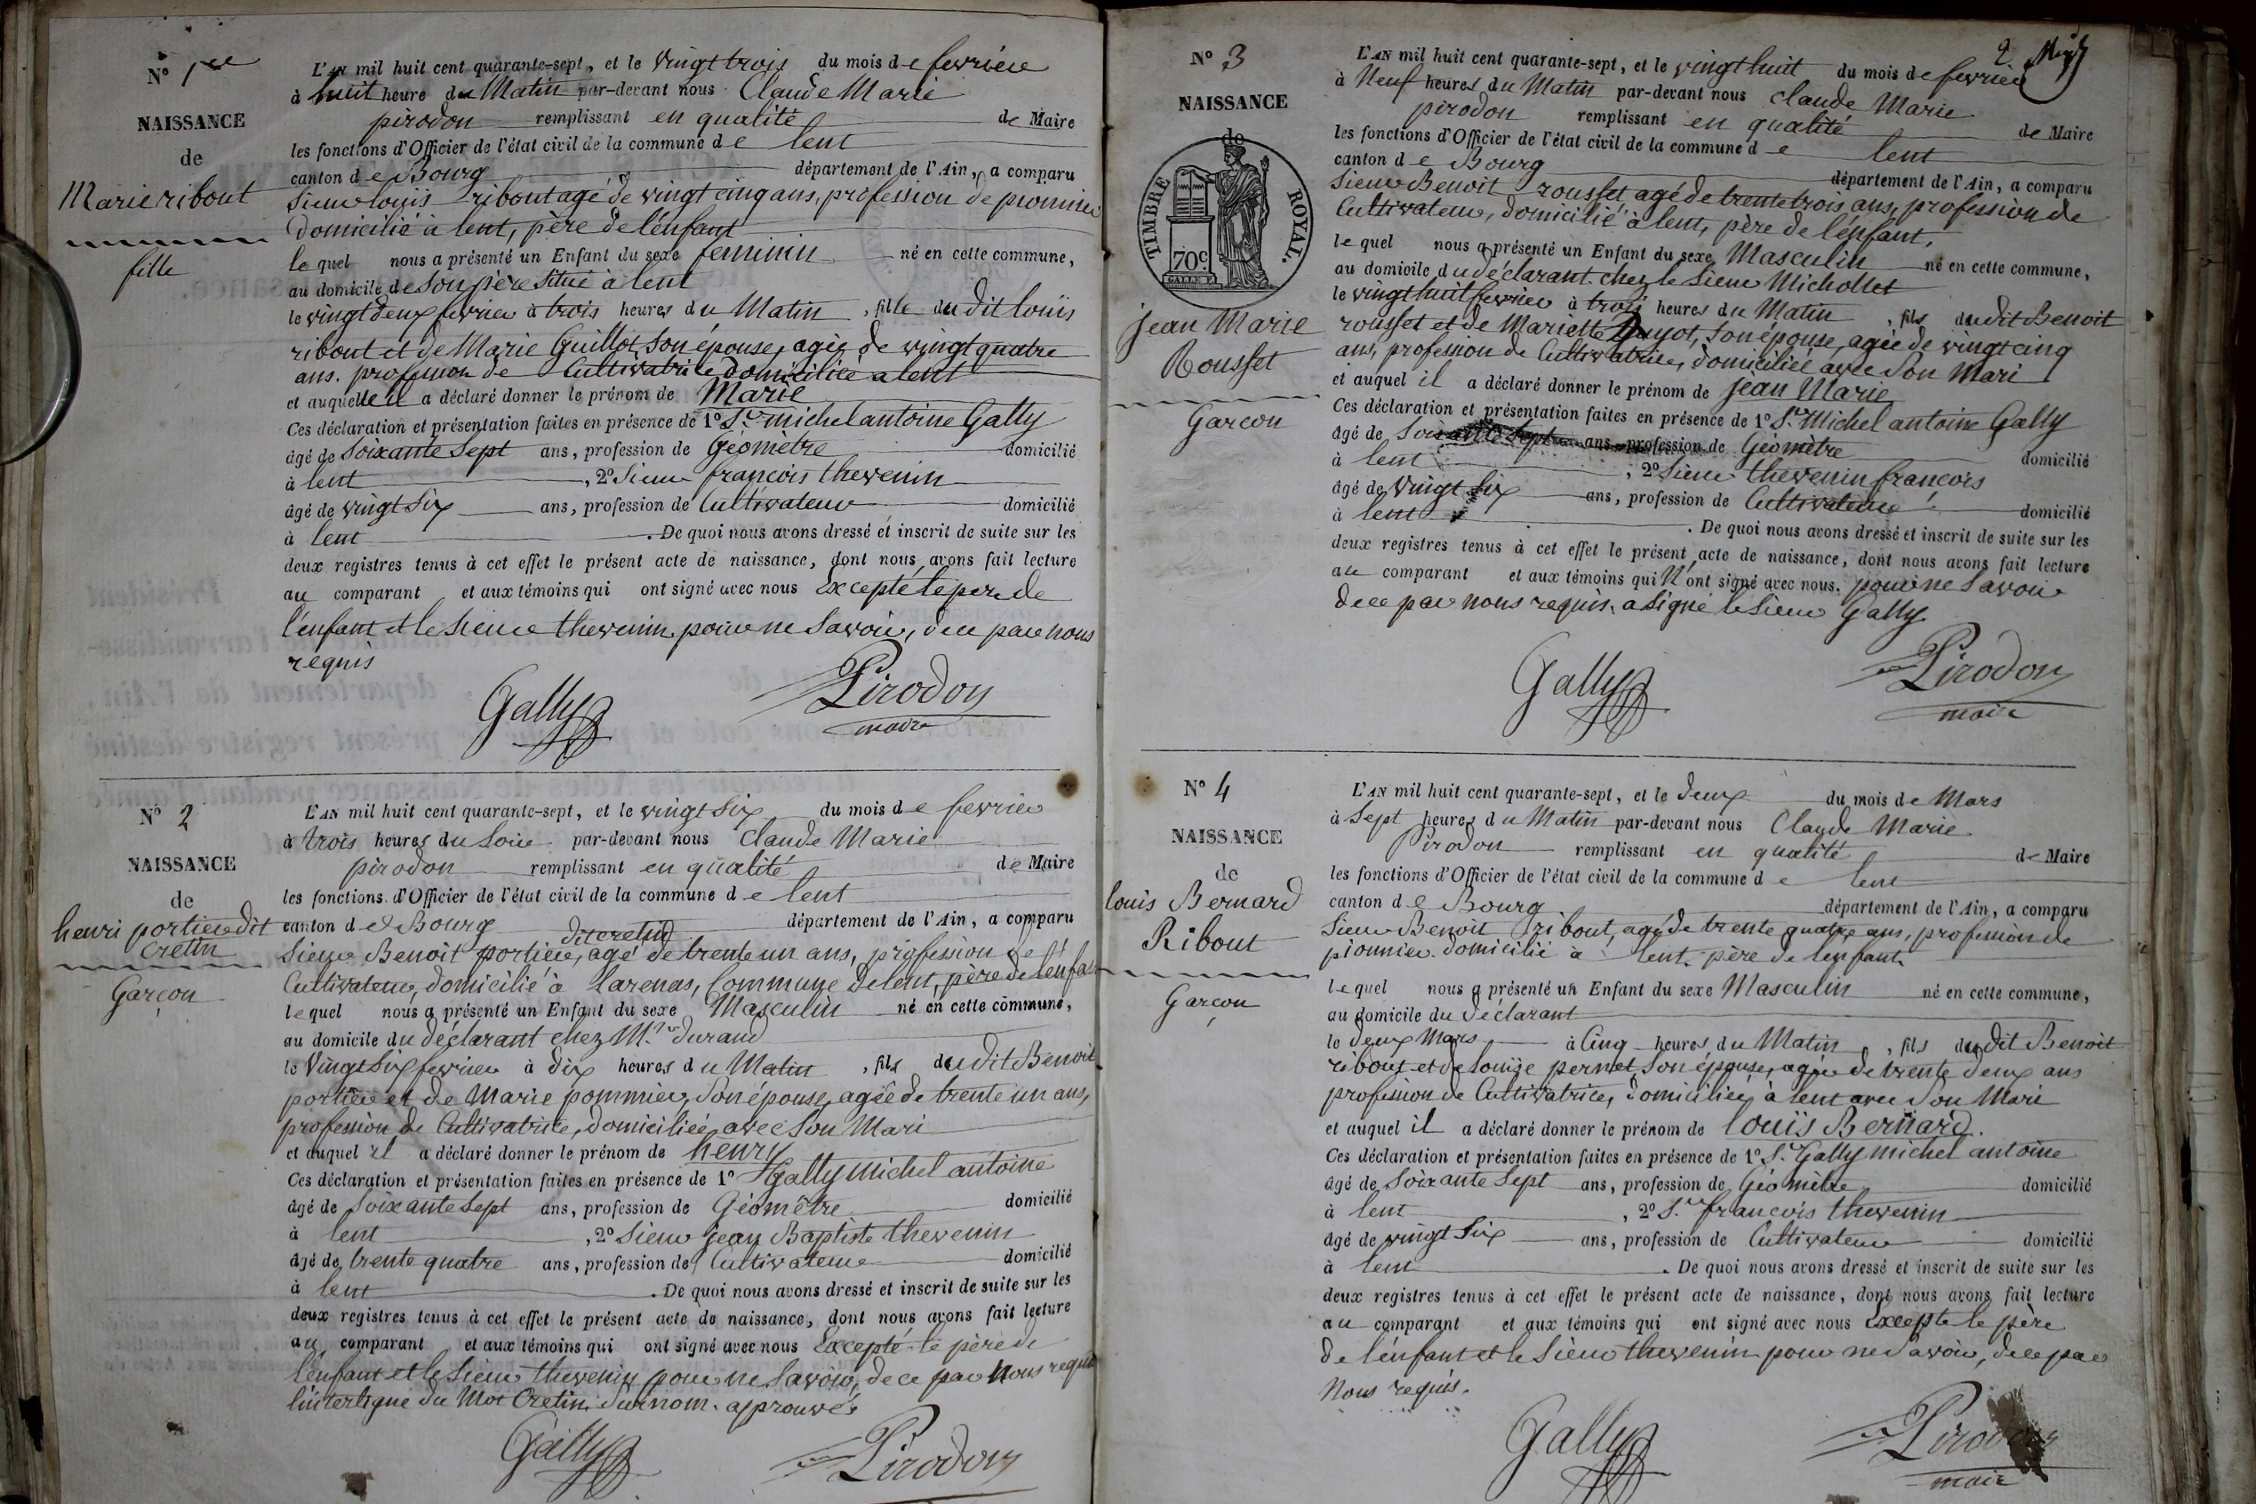 N° 1re
NAISSANCE
de
Marie ribout
fille
L'AN mil huit cent quarante-sept, et le vingt trois du mois de fevrier
à huit heure du Matin par-devant nous Claude Marie
pirodon remplissant en qualité de Maire
les fonctions d'Officier de l'état civil de la commune de lent
canton de Bourg département de l'Ain, a comparu
Sieur louis ribout agé de vingt cinq ans, profession de pionnier
domicilié à lent, père de l'énfant
lequel nous a présenté un Enfant du sexe feminin né en cette commune,
au domicile de son père situé à lent
le vingt deux fevrier à trois heures du Matin, fille du dit louis
ribout et de Marie Guillot, son épouse, agée de vingt quatre
ans. profession de Cultivatrice domiciliée a lent
et auquel il a déclaré donner le prénom de Marie
Ces déclaration et présentation faites en présence de 1° Sr. michel antoine Gally
âgé de Soixante Sept ans, profession de Géomètre domicilié
à lent, 2° Sieur francois thevenin
âgé de vingt Six ans, profession de Cultivateur domicilié
à lent. De quoi nous avons dressé et inscrit de suite sur les
deux registres tenus à cet effet le présent acte de naissance, dont nous avons fait lecture
au comparant et aux témoins qui ont signé avec nous Excepté le pere de
l'énfant et le Sieur thevenin pour ne Savoir, de ce par nous
requis
Gally Pirodon
maire
N° 2
NAISSANCE
de
henri portier dit
Cretin
Garçon
L'AN mil huit cent quarante-sept, et le vingt Six du mois de fevrier
à trois heures du Soir par-devant nous Claude Marie
pirodon remplissant en qualité de Maire
les fonctions d'Officier de l'état civil de la commune de lent
canton de Bourg département de l'Ain, a comparu
dit cretin
Sieur Benoit portier, agé de trente un ans, profession de
Cultivateur, domicilié à larenas, Commune de lent, père de l'énfant
lequel nous a présenté un Enfant du sexe Masculin né en cette commune,
au domicile du déclarant chez Mr. durand
le Vingt Six fevrier à dix heures du Matin, fils du dit Benoit
portier et de Marie pommier, Son épouse, agée de trente un ans,
profession de Cultivatrice, domiciliée avec Son Mari
et auquel il a déclaré donner le prénom de henry
Ces déclaration et présentation faites en présence de 1° Gally michel antoine
âgé de Soixante Sept ans, profession de Géomètre domicilié
à lent, 2° Sieur jean Baptiste thevenin
âgé de trente quatre ans, profession de Cultivateur domicilié
à lent. De quoi nous avons dressé et inscrit de suite sur les
deux registres tenus à cet effet le présent acte de naissance, dont nous avons fait lecture
au comparant et aux témoins qui ont signé avec nous Excepté le père de
l'énfant et le Sieur thevenin pour ne Savoir, de ce par Nous requis
l'interligne du Mot Cretin Surnom. approuvés
Gally Pirodon
2
N° 3
NAISSANCE
de
TIMBRE ROYAL.
70c.
jean Marie
Rousset
Garcon
L'AN mil huit cent quarante-sept, et le vingt huit du mois de fevrier
à Neuf heures du Matin par-devant nous Claude Marie
pirodon remplissant en qualité de Maire
les fonctions d'Officier de l'état civil de la commune de lent
canton de Bourg département de l'Ain, a comparu
Sieur Benoit rousset agé de trente trois ans, profession de
Cultivateur, domicilié à lent, père de l'énfant,
lequel nous a présenté un Enfant du sexe Masculin né en cette commune,
au domicile du déclarant chez le Sieur Michollet
le vingt huit fevrier à trois heures du Matin, fils du dit Benoit
rousset et de Mariette Guyot, Son épouse, agée de vingt cinq
ans, profession de Cultivatrice, domiciliée avec Son Mari
et auquel il a déclaré donner le prénom de jean Marie
Ces déclaration et présentation faites en présence de 1° Sr. Michel antoine Gally
âgé de Soixante Sept ans profession de Géomètre domicilié
à lent, 2° Sieur thevenin francois
âgé de Vingt Six ans, profession de Cultivateur domicilié
à lent. De quoi nous avons dressé et inscrit de suite sur les
deux registres tenus à cet effet le présent acte de naissance, dont nous avons fait lecture
au comparant et aux témoins qui N'ont signé avec nous. pour ne Savoir
de ce par nous requis. a Signé le Sieur Gally
Gally Pirodon
maire
N° 4
NAISSANCE
de
louis Bernard
Ribout
Garçon
L'AN mil huit cent quarante-sept, et le deux du mois de Mars
à Sept heures du Matin par-devant nous Claude Marie
Pirodon remplissant en qualité de Maire
les fonctions d'Officier de l'état civil de la commune de lent
canton de Bourg département de l'Ain, a comparu
Sieur Benoit ribout, agé de trente quatre ans, profession de
pionnier domicilié à lent père de l'énfant
lequel nous a présenté un Enfant du sexe Masculin né en cette commune,
au domicile du déclarant
le deux Mars à Cinq heures du Matin, fils du dit Benoit
ribout et de louise pernet, Son épouse, agée de trente deux ans
profession de Cultivatrice, domiciliée à lent avec Son Mari
et auquel il a déclaré donner le prénom de louis Bernard.
Ces déclaration et présentation faites en présence de 1° Sr. Gally michel antoine
âgé de Soixante Sept ans, profession de Géomètre domicilié
à lent, 2° Sr. francois thevenin
âgé de vingt Six ans, profession de Cultivateur domicilié
à lent. De quoi nous avons dressé et inscrit de suite sur les
deux registres tenus à cet effet le présent acte de naissance, dont nous avons fait lecture
au comparant et aux témoins qui ont signé avec nous Excepte le père
de l'énfant et le Sieur thevenin pour ne Savoir, de ce par
Nous requis.
Gally Pirodon
maire